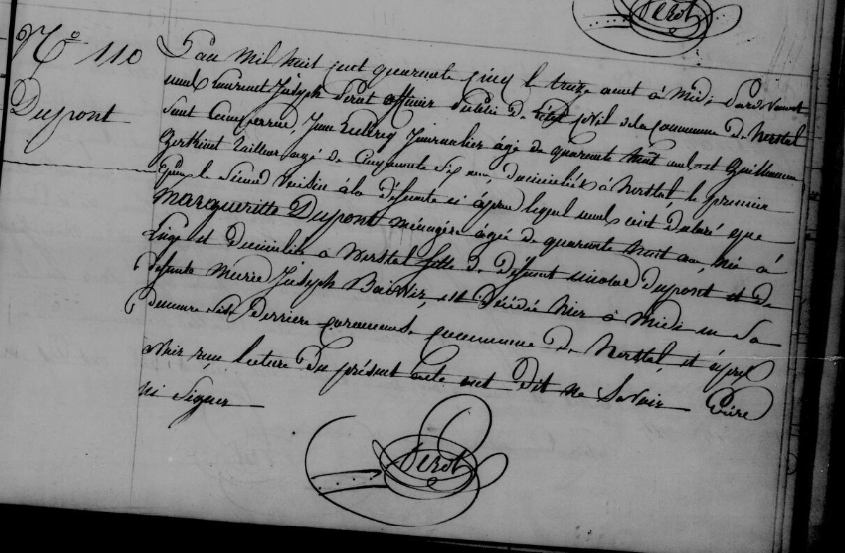 Perot
N.º 110
Dupont
L'an mil huit cent quarante cinq le treize aout à midi Pardevant
nous Laurent Joseph Perot officier Public de l'état civil de la commune de Herstal
sont comparus, Jean Leclercq Journalier âgé de quarante huit ans et Guillaume
tailleur agé de Cinquante Six ans, domiciliés à Herstal, le premier
Epoux le Second Voisin à la défunte ci après lequel nous ont déclaré que
Margueritte Dupont ménagère âgée de quarante huit ans, née à
Liège et domiciliée à Herstal fille de défunt Nicolas Dupont et de
défunte Marie Joseph est décédée hier à Midi en Sa
demeure sise Derrière commune de Herstal, et après
avoir reçu lecture du présent acte ont dit ne Savoir Ecrire
ni Signer
Perot